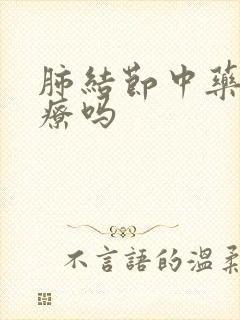 肺結節中藥
療嗎
不言語的溫柔